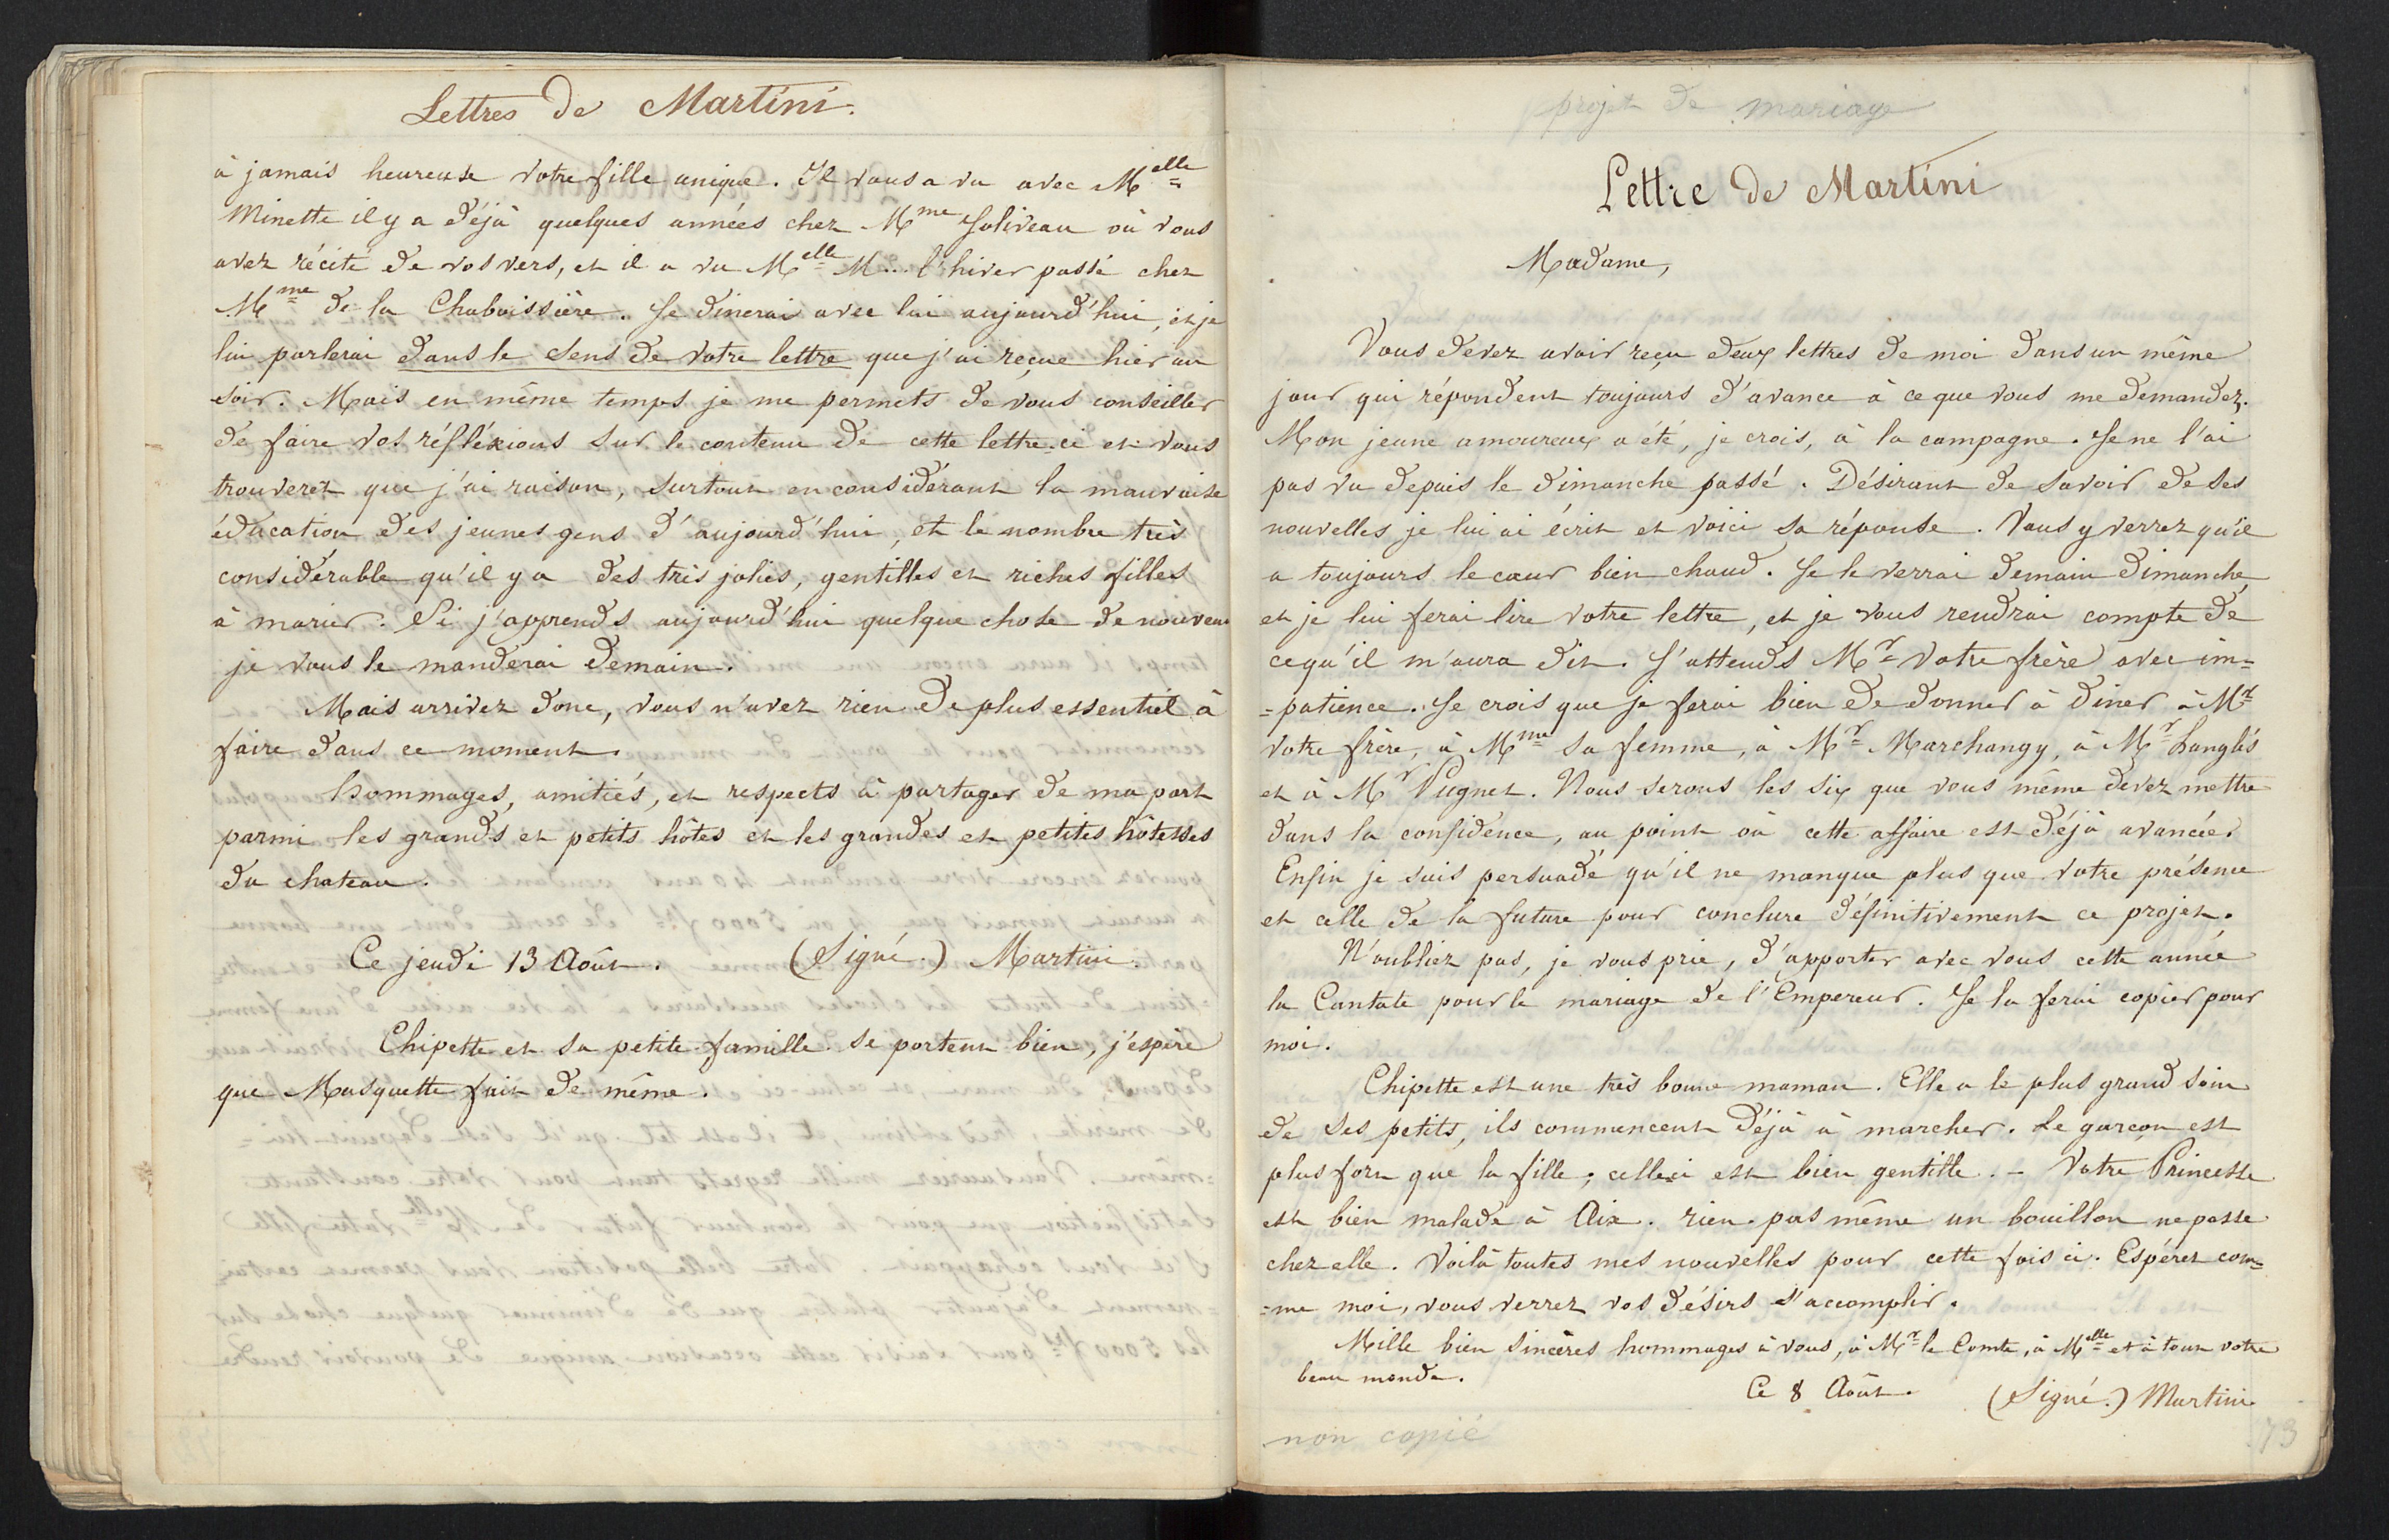 Lettres de Martini.
à jamais heureuse votre fille unique. Il vous a vu avec Melle
Minette il y a déjà quelques années chez Mme Soliveau où vous
avez récité de vos vers, et il a vu Melle M... l'hiver passé chez
Mme de la Chabaissière. Je dinerai avec lui aujourd'hui, et je
lui parlerai dans le sens de votre lettre que j'ai reçue hier au
soir. Mais en même temps je me permets de vous conseiller
de faire vos réfléxions sur le contenu de cette lettre-ci et vous
trouverez que j'ai raison, surtout en considérant la mauvaise
éducation des jeunes gens d'aujourd'hui, et le nombre très
considérable qu'il y a des très jolies, gentilles et riches filles
à marier. Si j'apprends aujourd'hui quelque chose de nouveau
je vous le manderai demain.
Mais arrivez donc, vous n'avez rien de plus essentiel à
faire dans ce moment.
Hommages, amitiés, et respects à partager de ma part
parmi les grands et petits hôtes et les grandes et petites hôtesses
du chateau.
Ce jeudi 13 Août. (Signé.) Martini.
Chipette et sa petite famille se portent bien, j'espère
que Masquette fait de même.
projet de mariage
Lettre de Martini
Madame,
Vous devez avoir reçu deux lettres de moi dans un même
jour qui répondent toujours d'avance à ce que vous me demandez.
Mon jeune amoureux a été, je crois, à la campagne. Je ne l'ai
pas vu depuis le dimanche passé. Désirant de savoir de ses
nouvelles je lui ai écrit et voici sa réponse. Vous y verrez qu'il
a toujours le cœur bien chaud. Je le verrai demain dimanche,
et je lui ferai lire votre lettre, et je vous rendrai compte de
ce qu'il m'aura dit. J'attends Mr votre frère avec im=
=patience. Je crois que je ferai bien de donner à diner à Mr
votre frère, à Mme sa femme, à Mr Marchangy, à Mr Langlès
et à Mr Pugnet. Nous serons les six que vous même devez mettre
dans la confidence, au point où cette affaire est déjà avancée.
Enfin je suis persuadé qu'il ne manque plus que votre présence
et celle de la future pour conclure définitivement ce projet.
N'oubliez pas, je vous prie, d'apporter avec vous cette année
la Cantate pour le mariage de l'Empereur. Je la ferai copier pour
moi.
Chipette est une très bonne maman. Elle a le plus grand soin
de ses petits, ils commencent déjà à marcher. Le garçon est
plus fort que la fille; celle-ci est bien gentille. - Votre Princesse
est bien malade à Aix. rien pas même un bouillon ne passe
chez elle. Voilà toutes mes nouvelles pour cette fois ci. Espérez com=
=me moi, vous verrez vos désirs s'accomplir.
Mille bien sincères hommages à vous, à Mr le Comte, à Melle et à tout votre
beau monde.
Ce 8 Août. (Signé.) Martini
non copié
73